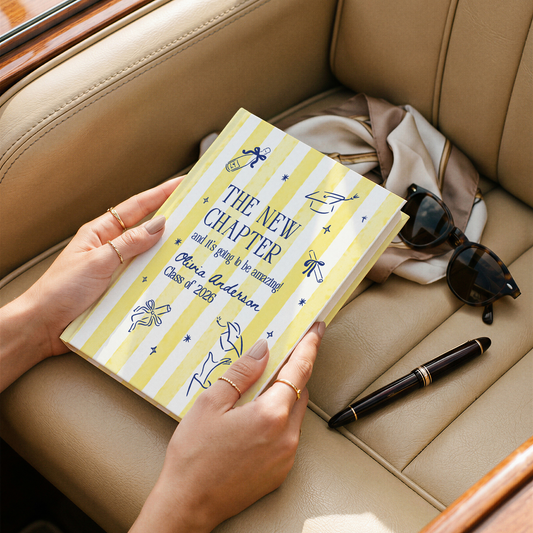 THE NEW
CHAPTER
and it's going to be amazing!
Olivia Anderson
Class of 2026